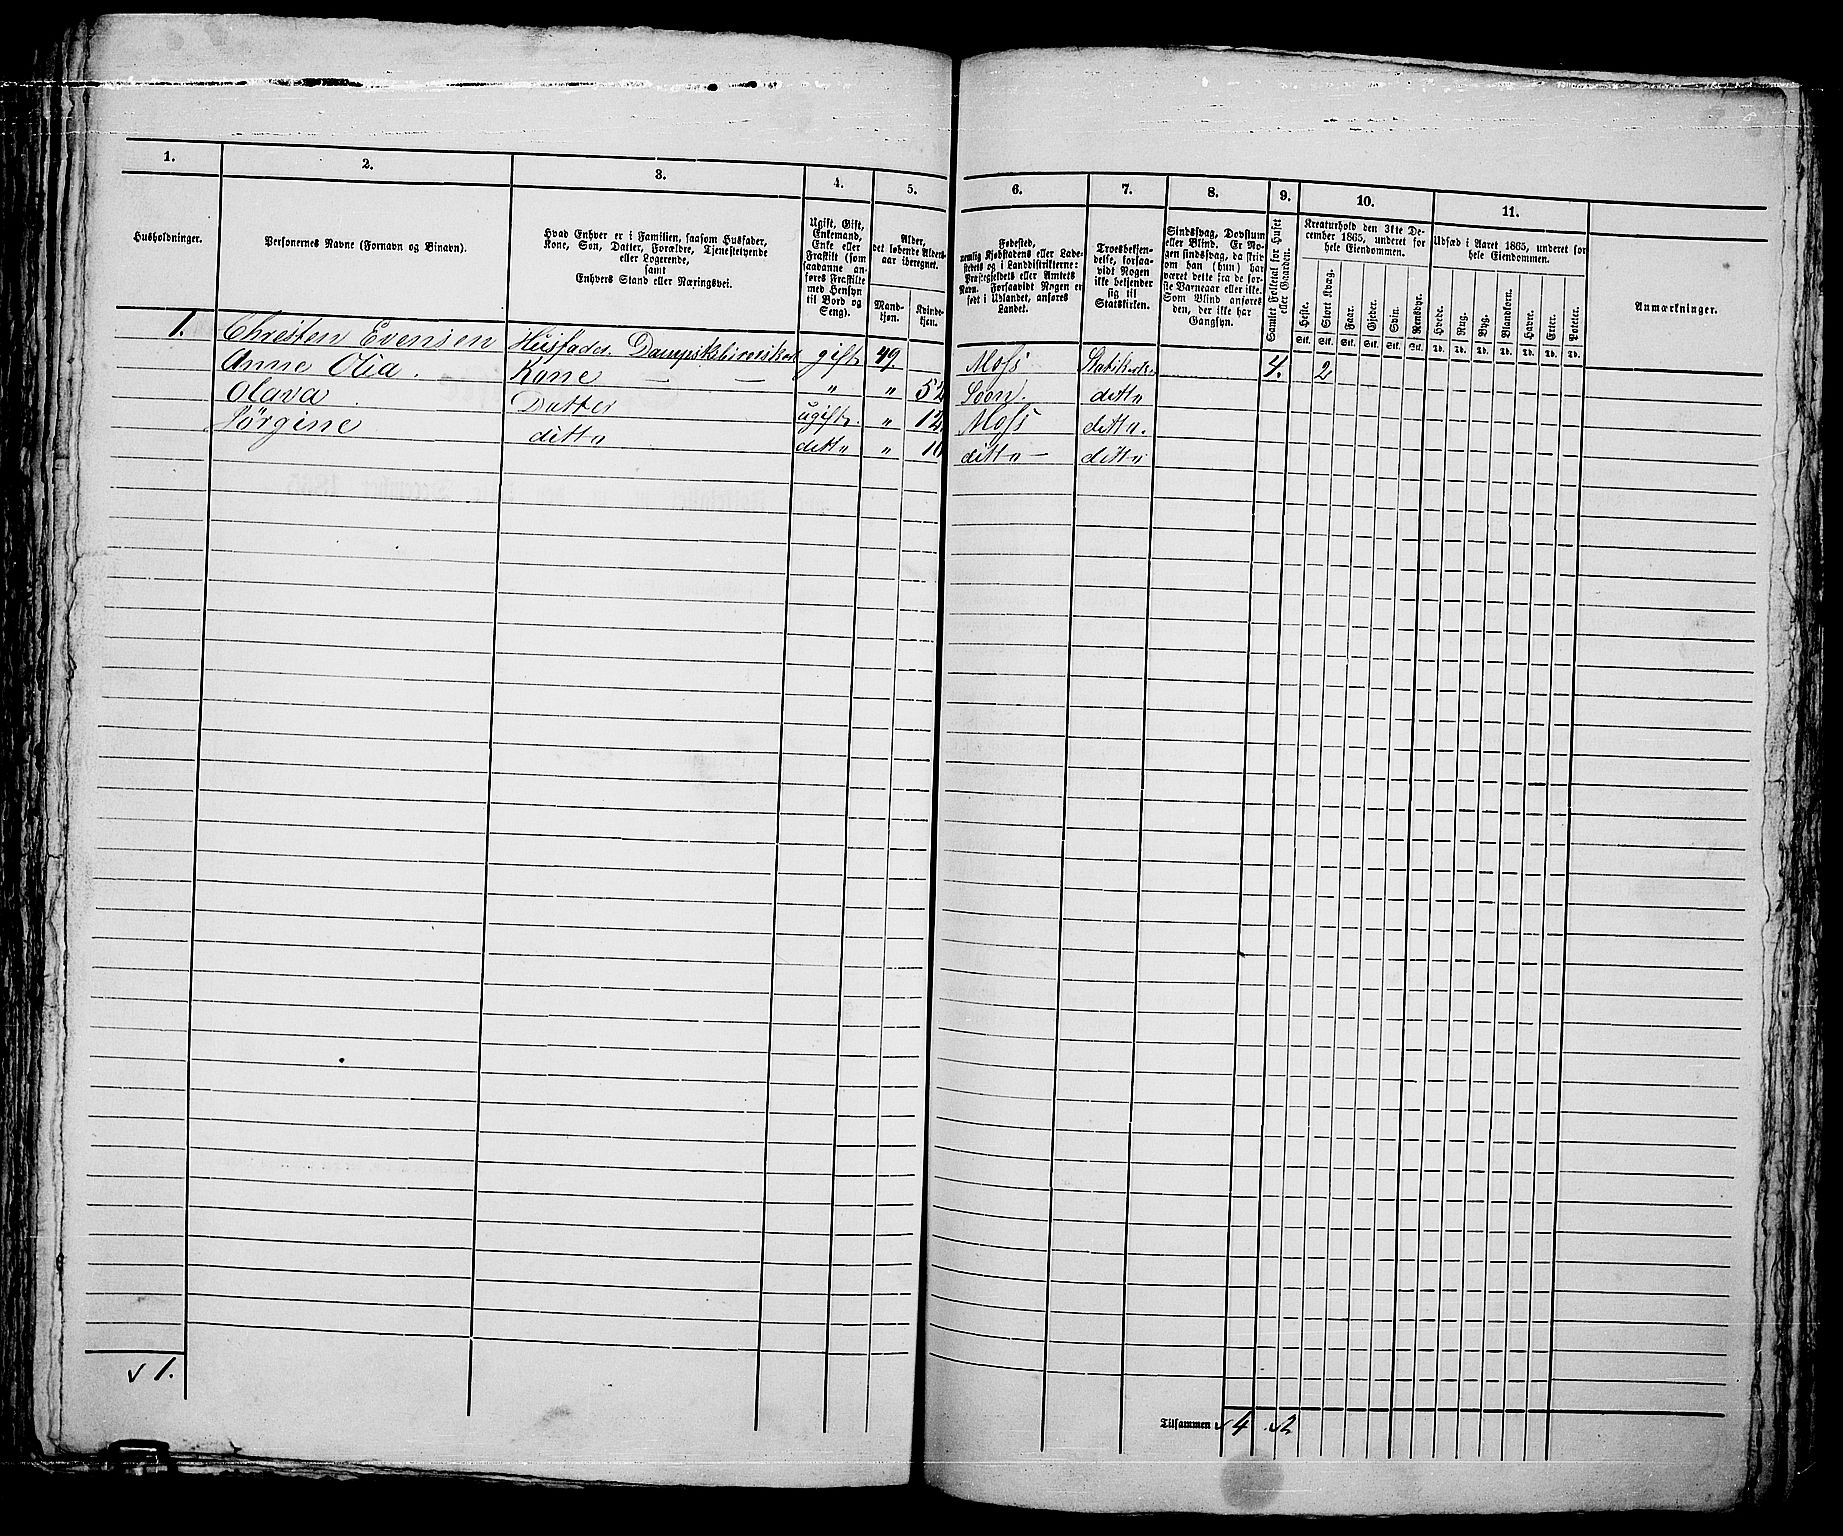 1.
2.
3.
4.
5.
Husholdninger.
Personernes Navne (Fornavn og Binavn).
Hvad Enhver er i Familien, saasom Husfader,
Kone, Søn, Datter, Forældre, Tjenestetyende
eller Logerende,
samt
Enhvers Stand eller Næringsvei.
Ugift, Gift,
Enkemand,
Enke eller
Fraskilt (som
saadanne an-
føres Fraskilte
med Hensyn
til Bord og
Seng).
Alder,
det løbende Alders-
aar iberegnet.
Mand-
kjøn.
Kvinde-
kjøn.
6.
7.
8.
9.
10.
11.
Fødested,
nemlig Kjøbstadens eller Lade-
stedets og i Landdistrikterne:
Præstegjeldets eller Amtets
Navn. Forsaavidt Nogen er
født i Udlandet, anføres
Landet.
Troesbekjen-
delse, forsaa-
vidt Nogen
ikke bekjender
sig til
Statskirken.
Sindssvag, Døvstum
eller Blind. Er No-
gen sindssvag, da skriv
om han (hun) har
været dette fra de før-
ste Barneaar eller ikke.
Som Blind anføres
den, der ikke har
Gangsyn.
Samlet Folketal for Huset
eller Gaarden.
Kreaturhold den 31te De-
cember 1865, underet for
hele Eiendommen.
Udsæd i Aaret 1865, underet for
hele Eiendommen.
Anmærkninger.
Heste. Stort Kvæg. Faar. Gjeder. Svin. Rensdyr. Hvede. Rug. Byg. Blandkorn. Havre. Erter. Poteter.
Stk. Stk. Stk. Stk. Stk. Stk. Td. Td. Td. Td. Td. Td. Td.
1. Chresten Evensen Husfader. gift 49. Moss 4. 2
Anne Olia. Kone — — " " 52 Soon. ditto
Olava Datter ugift. " 12 Moss ditto.
Jørgine ditto ditto " ditto — ditto
1.
Tilsammen 4 2